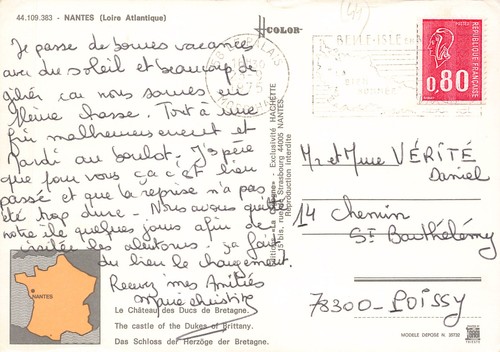 44.109.383 - NANTES (Loire Atlantique)
COLOR
Je passe de bonnes vacances
avec du soleil et beaucoup de
gibier car nous sommes en
pleine chasse. Tout à une
fin malheureusement et
Mardi au boulot. J'espère
que pour vous ça c'est bien
passé et que la reprise n'a pas
été trop dure - Nous avons quitté
notre île quelques jours afin de
visiter les alentours. ça fait
du bien le changement.
Recevez mes Amitiés
Marie Christine
NANTES
Le Château des Ducs de Bretagne.
The castle of the Dukes of Brittany.
Das Schloss der Herzöge der Bretagne.
Exclusivité HACHETTE
15 bis, rue de Strasbourg 44005 NANTES
Reproduction interdite
BELLE-ISLE en
REPUBLIQUE FRANCAISE
POSTES
0,80
Mr et Mme VÉRITÉ
Daniel
14 Chemin
St Barthélémy
78300 - POISSY
MODELE DEPOSE N. 39735